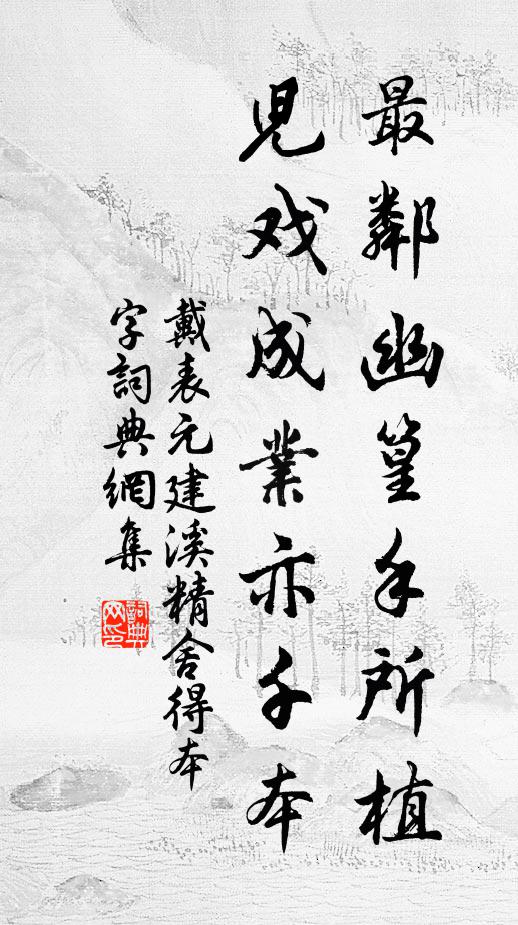 最鄰幽篁手所植
兒戏成業亦千本
戴表元建溪精舍得本
字詞典網集
詞典网印